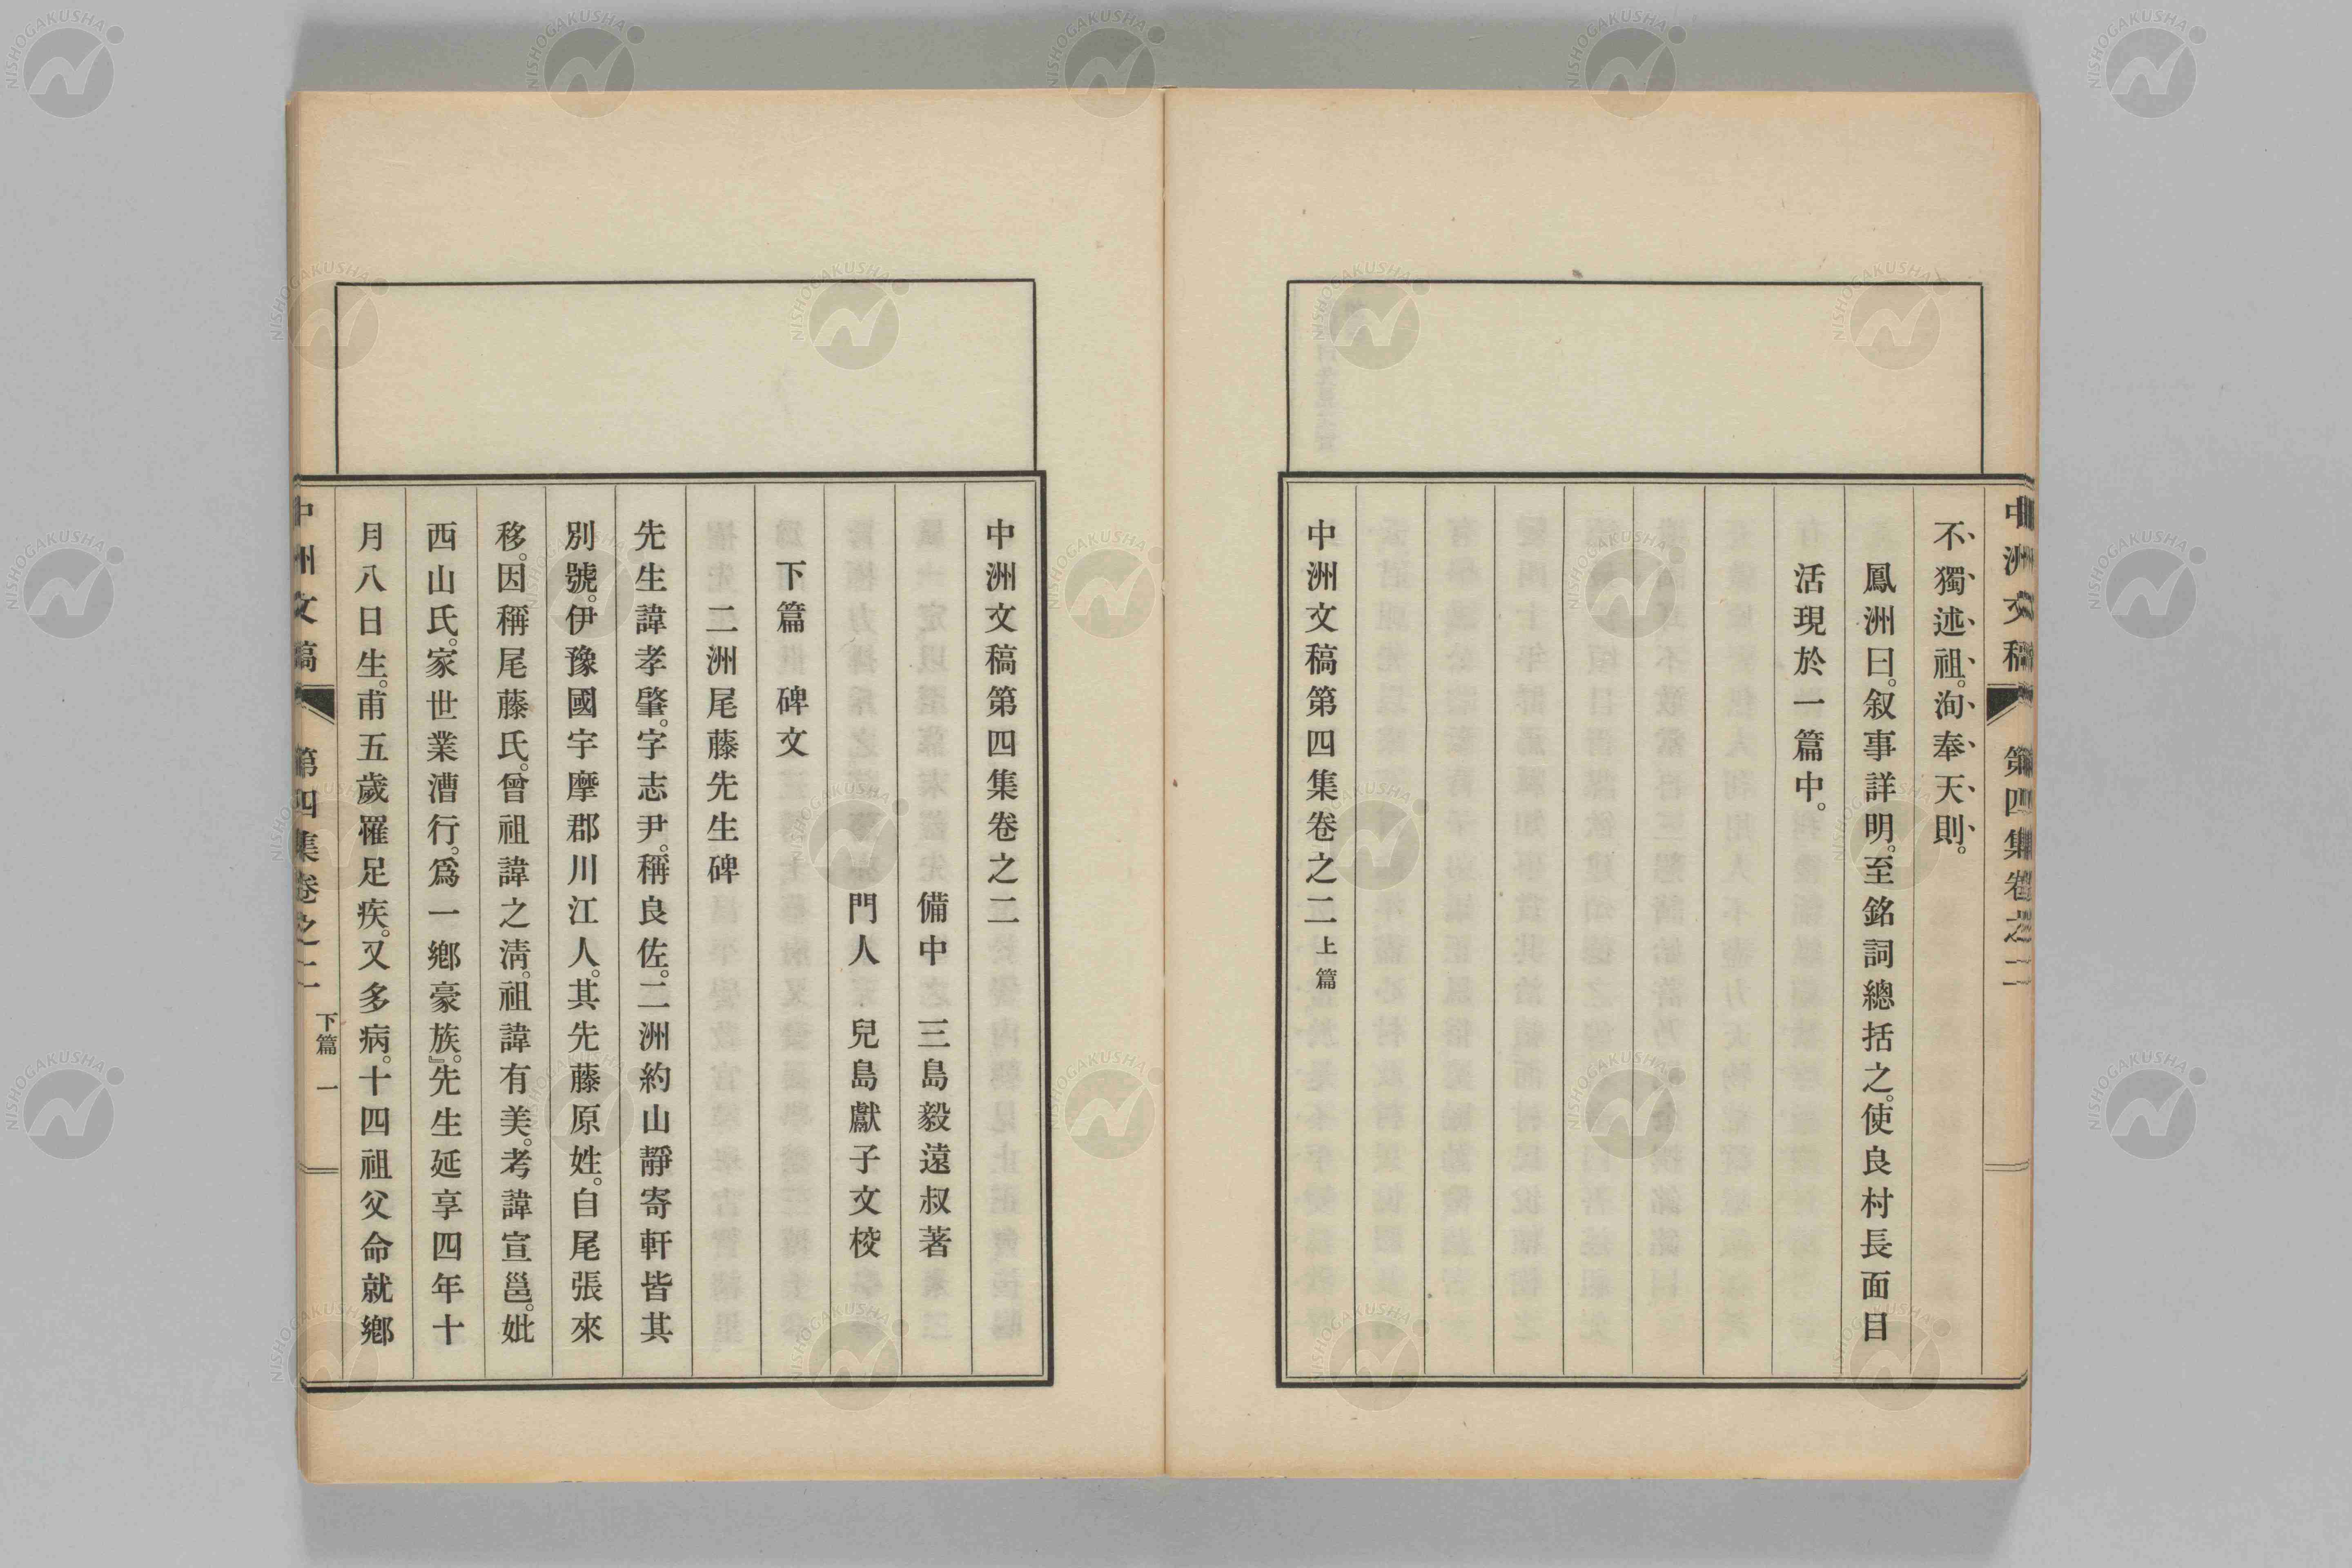 中洲文稿　第四集卷之二
不獨述祖。洵奉天則。
鳳洲曰。叙事詳明。至銘詞總括之。使良村長面目
活現於一篇中。
中洲文稿第四集卷之二上篇
中洲文稿第四集卷之二
備中　三島毅遠叔著
門人　兒島獻子文校
下篇　碑文
二洲尾藤先生碑
先生諱孝肇。字志尹。稱良佐。二洲約山靜寄軒皆其
別號。伊豫國宇摩郡川江人。其先藤原姓。自尾張來
移。因稱尾藤氏。曾祖諱之淸。祖諱有美。考諱宣邕。妣
西山氏。家世業漕行。爲一鄕豪族。』先生延享四年十
月八日生。甫五歲罹足疾。又多病。十四祖父命就鄕
中洲文稿　第四集卷之二　下篇　一
NISHOGAKUSHA